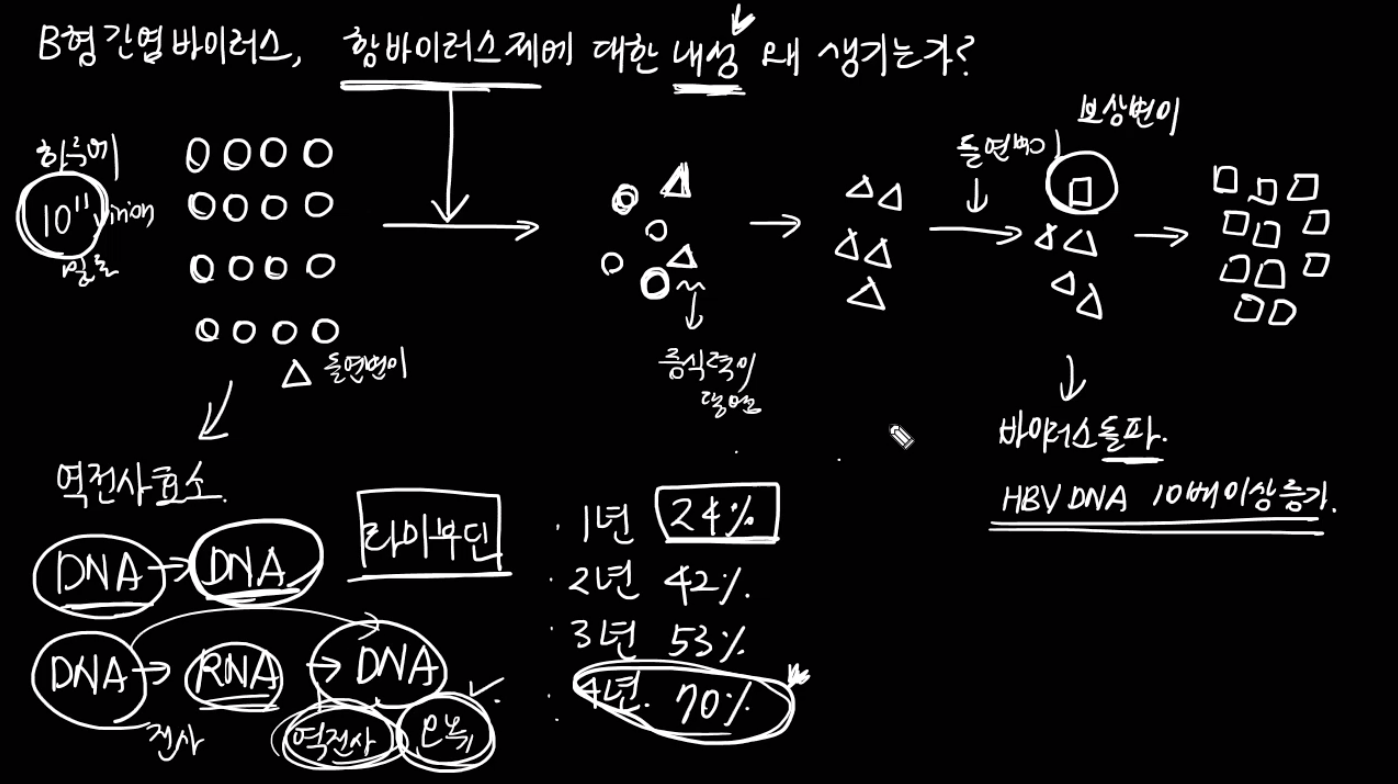 B형간염바이러스, 항바이러스제에 대한 내성 왜 생기는가?
보상변이
돌연변이
하루에
10¹¹ virion
돌연변이
증식력이
바이러스돌파.
HBV DNA 10배이상증가.
역전사효소.
DNA → DNA
DNA → RNA → DNA
전사
역전사
오독
라미부딘
· 1년 24%
· 2년 42%
· 3년 53%
· 4년. 70%